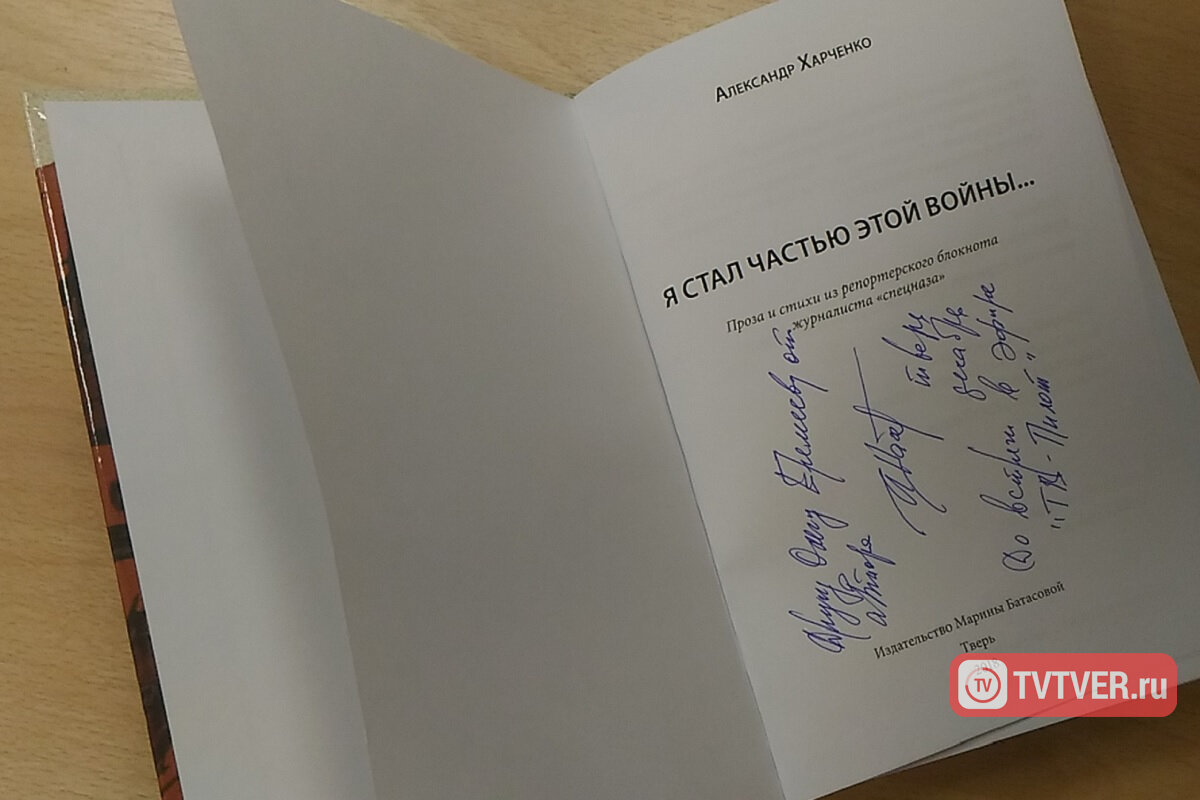 Александр Харченко
Я СТАЛ ЧАСТЬЮ ЭТОЙ ВОЙНЫ...
Проза и стихи из репортерского блокнота
журналиста «спецназа»
Другу Олегу Еремееву от
автора
Тверь
декабрь
До встречи в эфире
"ТВ-Пилот"
Издательство Марины Батасовой
Тверь
2018
TV TVTVER.ru